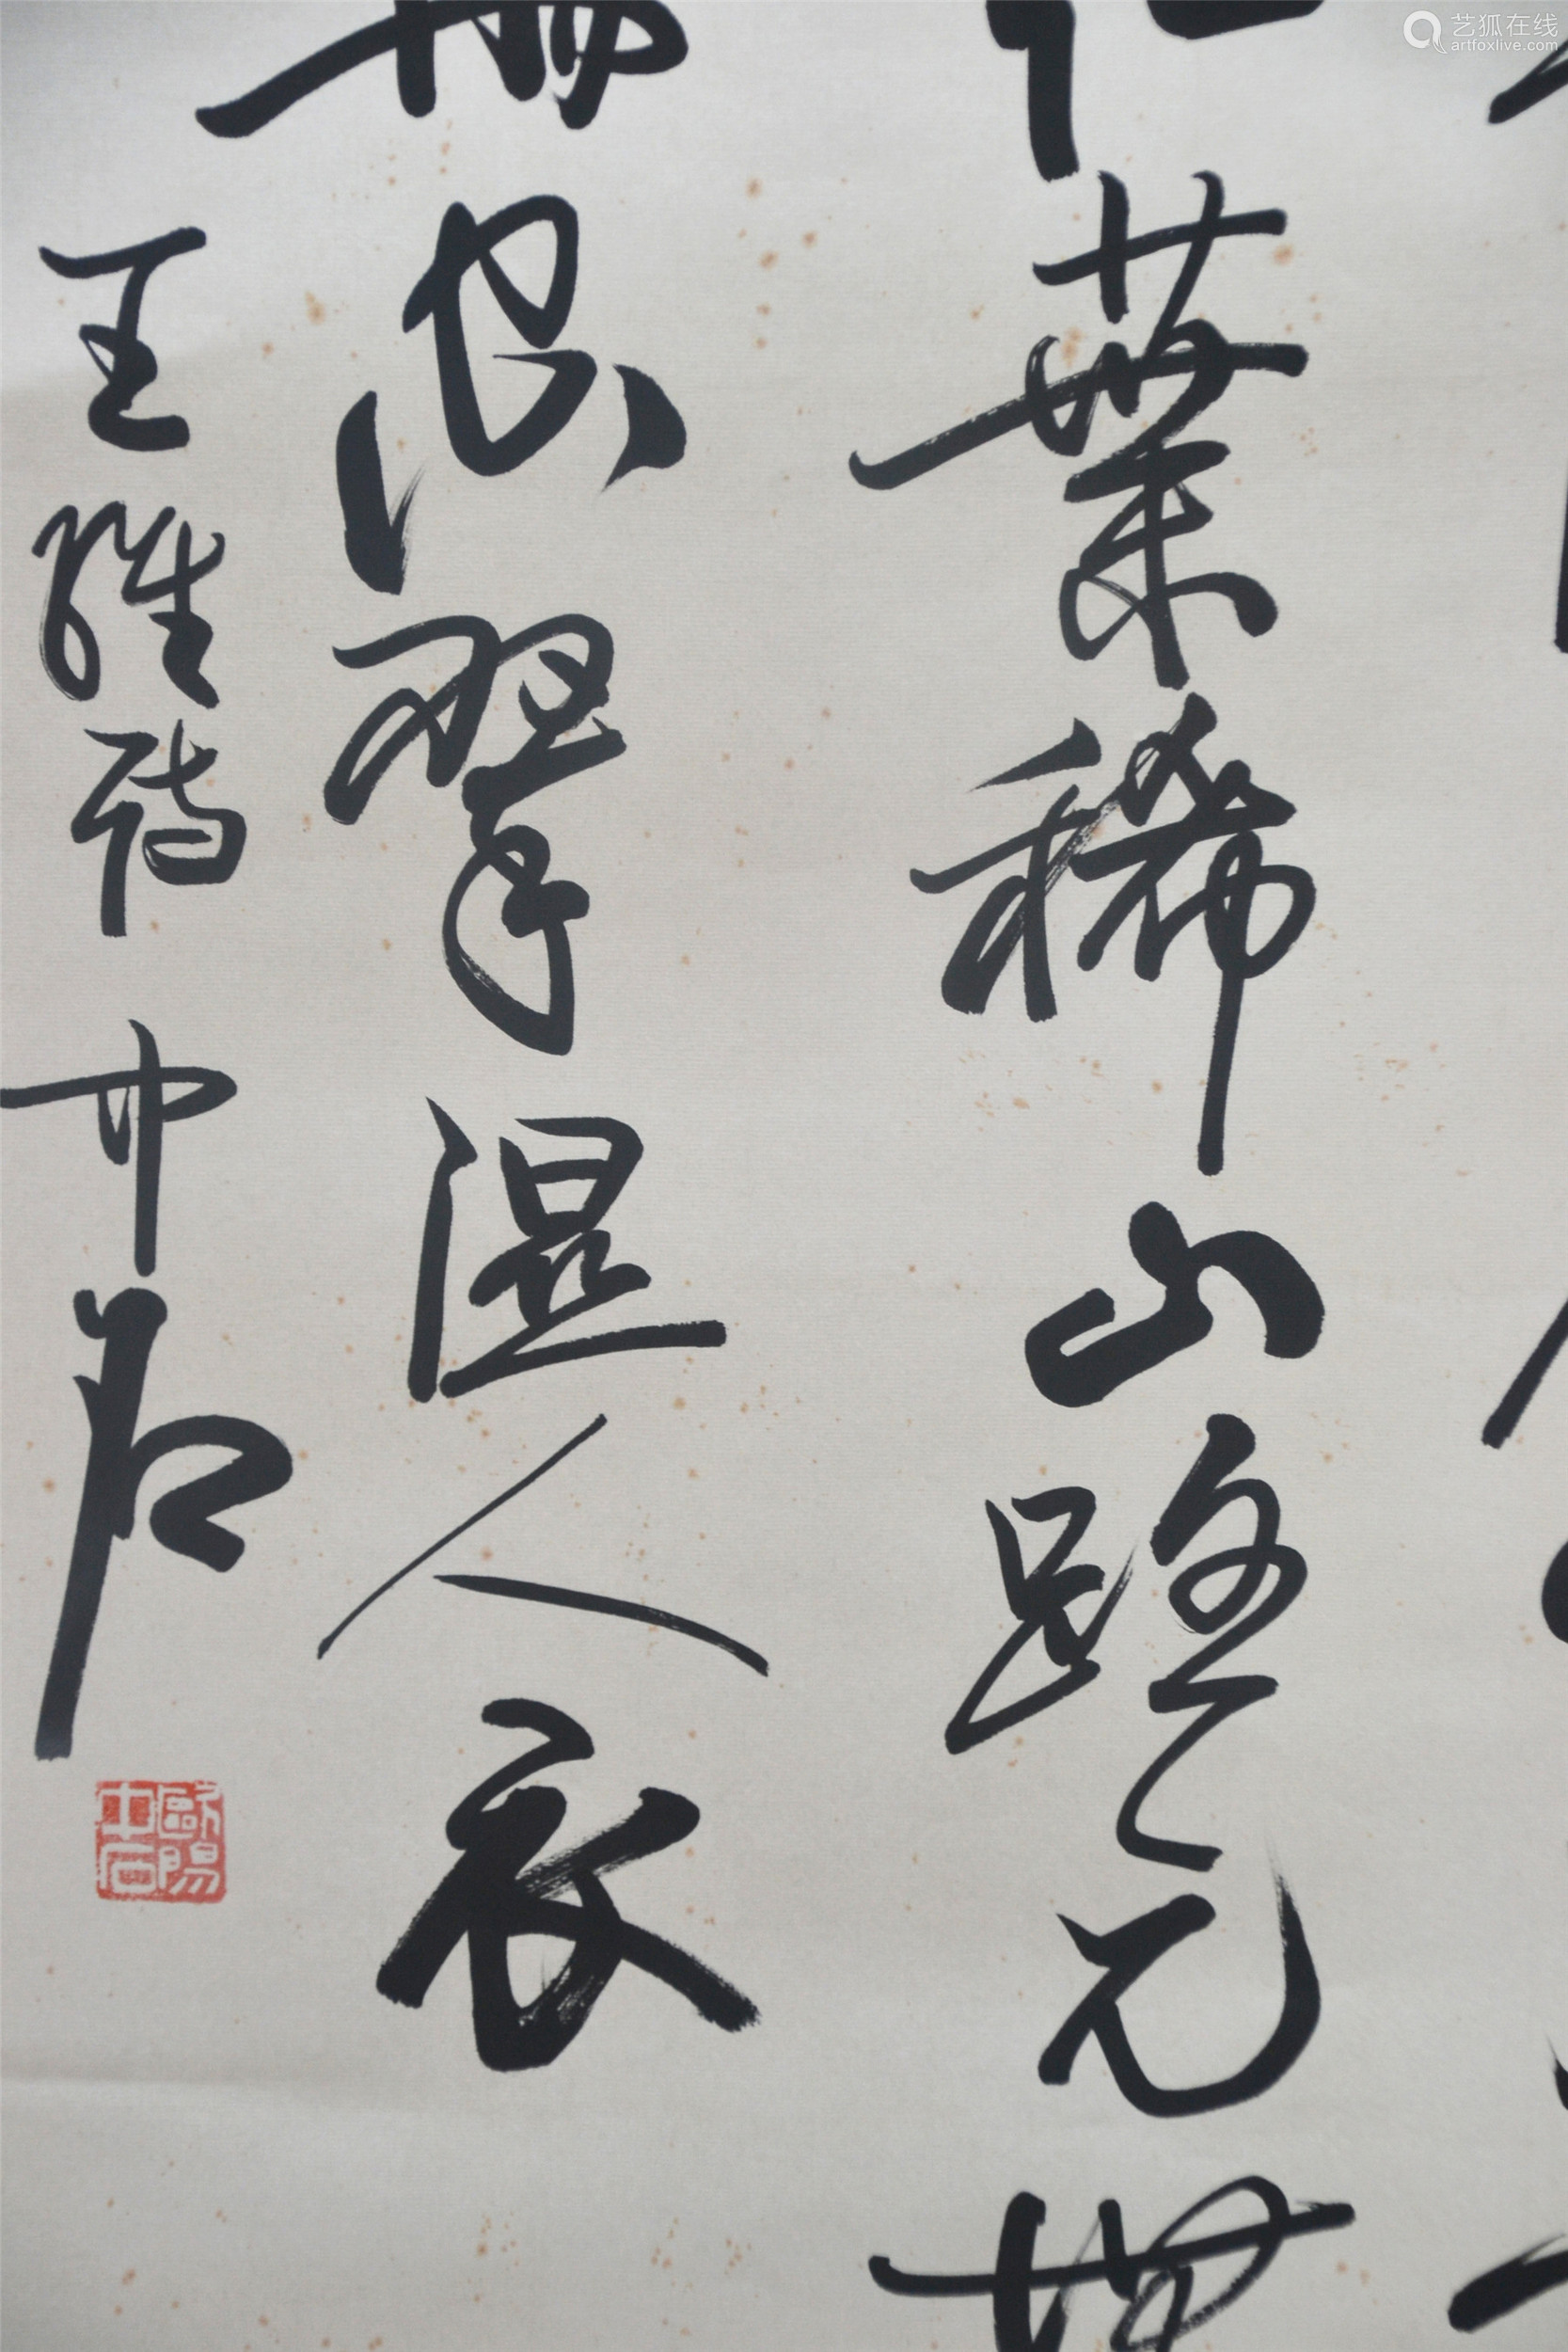 艺狐在线
artfoxlive.com
葉稀山路元無
空翠湿人衣
王維詩 中石
歐陽中石